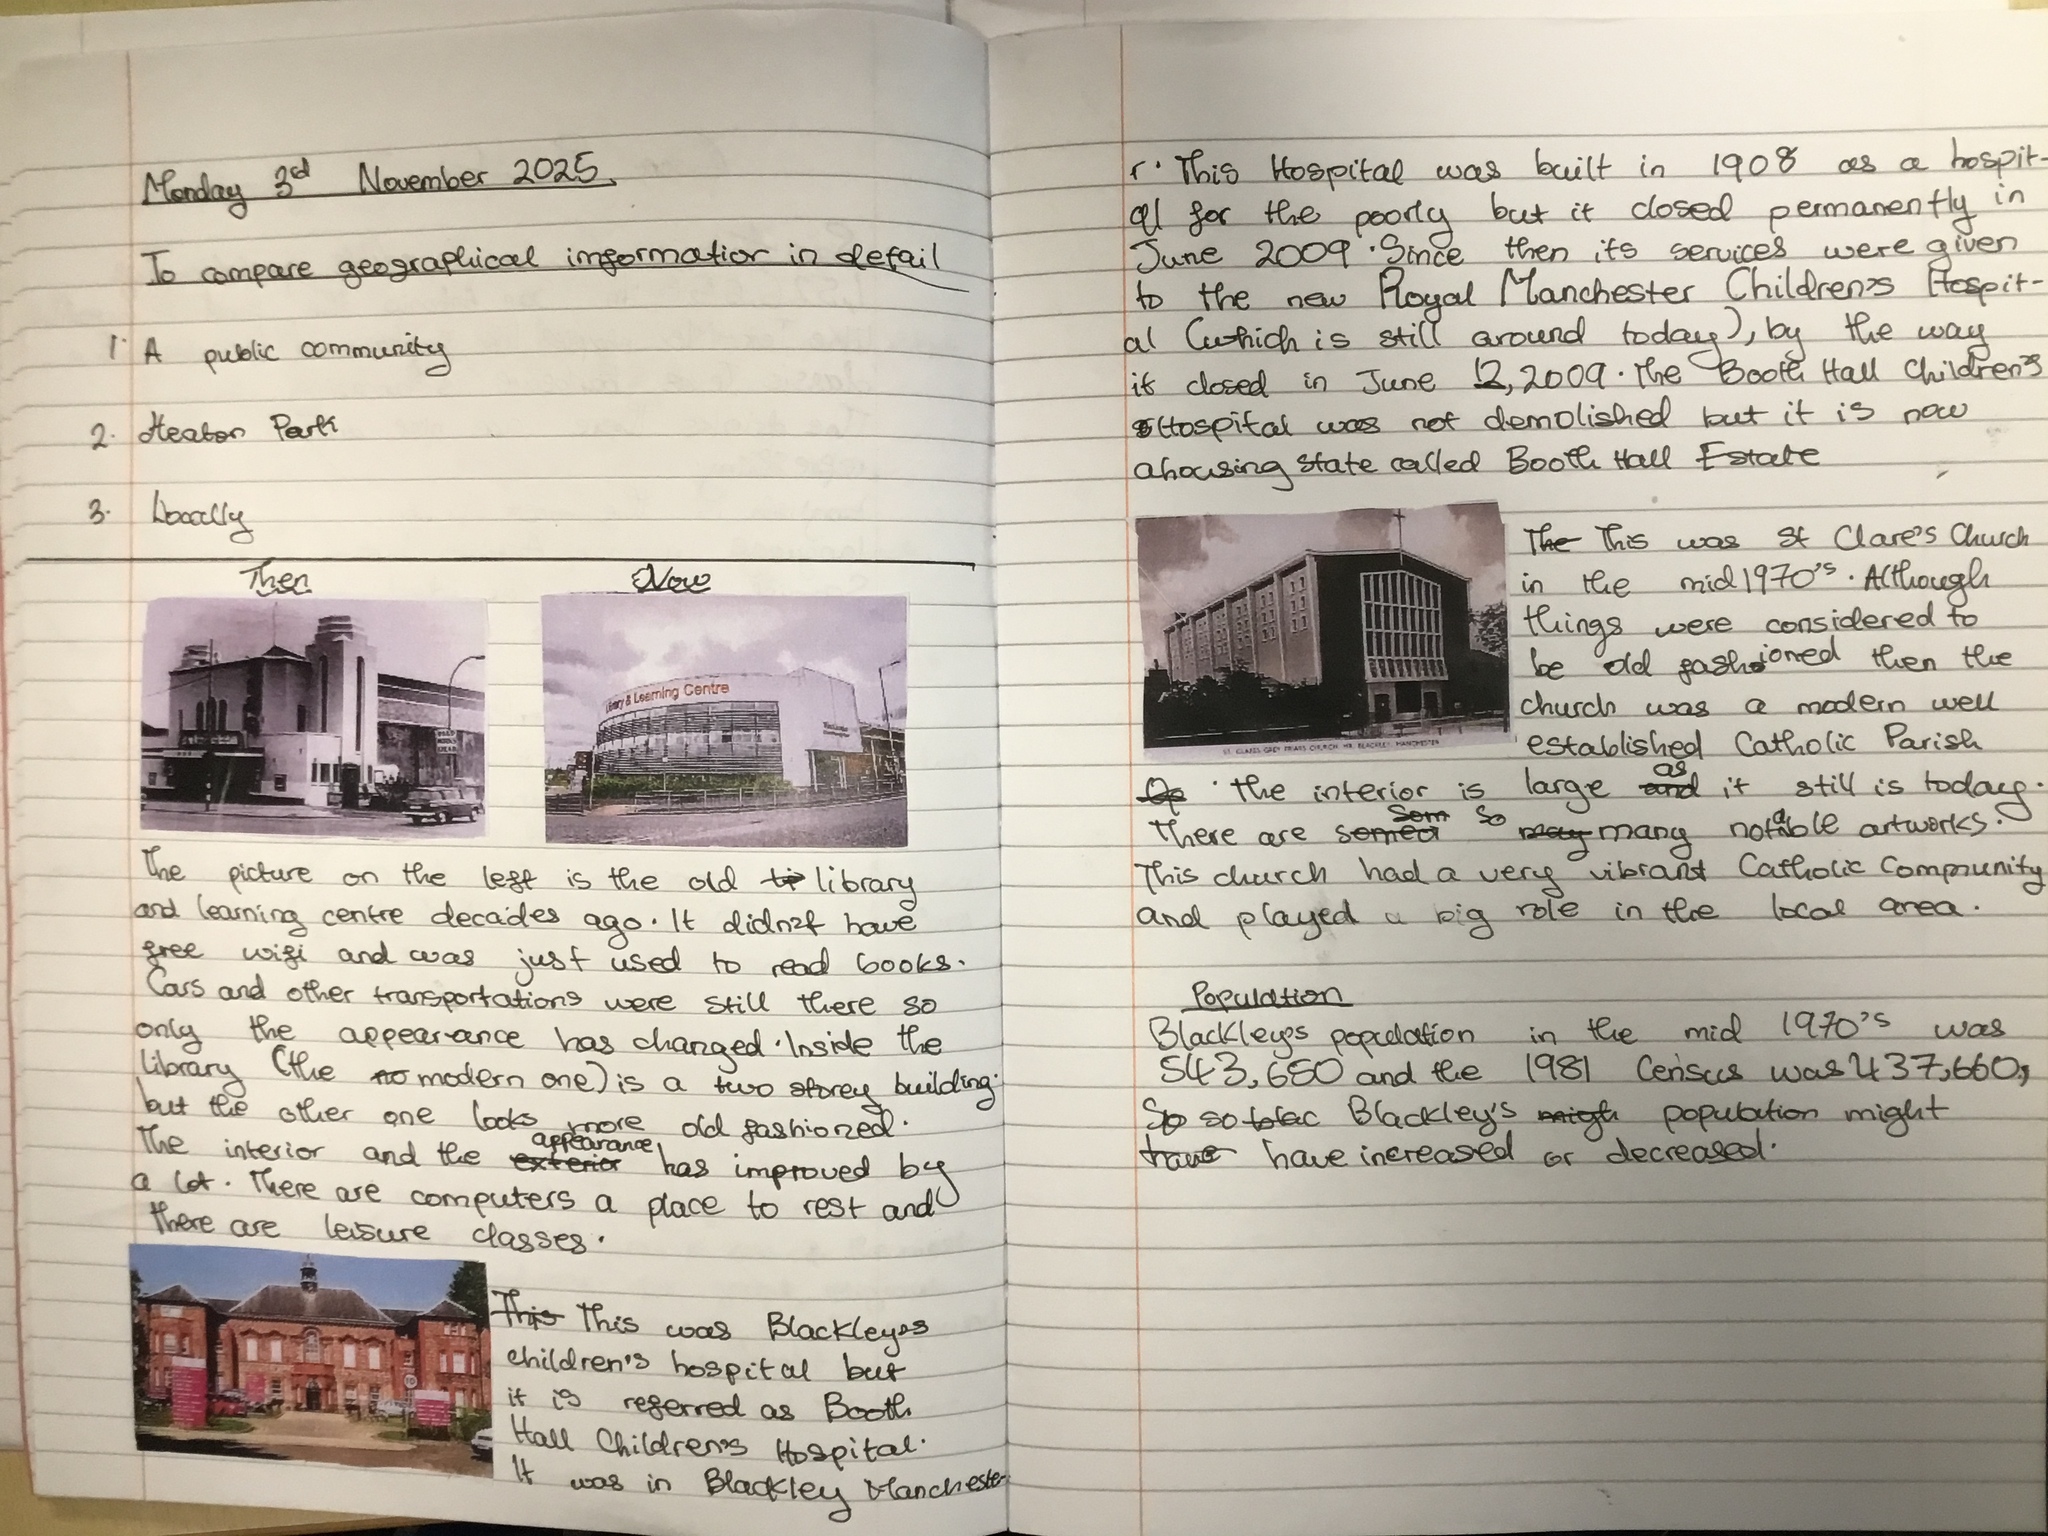 Monday 3rd November 2025.
To compare geographical information in detail
1. A public community
2. Heaton Park
3. Locally
Then Now
Library & Learning Centre
The picture on the left is the old library
and learning centre decades ago. It didn't have
free wifi and was just used to read books.
Cars and other transportations were still there so
only the appearance has changed. Inside the
library (the no modern one) is a two storey building
but the other one looks more old fashioned.
The interior and the exterior appearance has improved by
a lot. There are computers a place to rest and
there are leisure classes.
This This was Blackley's
children's hospital but
it is referred as Booth
Hall Children's Hospital.
It was in Blackley Manchester
r. This Hospital was built in 1908 as a hospit-
al for the poorly but it closed permanently in
June 2009. Since then its services were given
to the new Royal Manchester Children's Hospit-
al (which is still around today), by the way
it closed in June 12, 2009. The Booth Hall Children's
Hospital was not demolished but it is now
a housing state called Booth Hall Estate
The This was St Clare's Church
in the mid 1970's. Although
things were considered to
be old fashioned then the
church was a modern well
established Catholic Parish
ST. CLARES GREY FRIARS CHURCH, NR. BLACKLEY, MANCHESTER
. the interior is large and as it still is today.
There are somed som so may many notable artworks.
This church had a very vibrant Catholic Community
and played a big role in the local area.
Population
Blackley's population in the mid 1970's was
543,650 and the 1981 Census was 437,660,
So so Blackley's migh population might
have have increased or decreased.